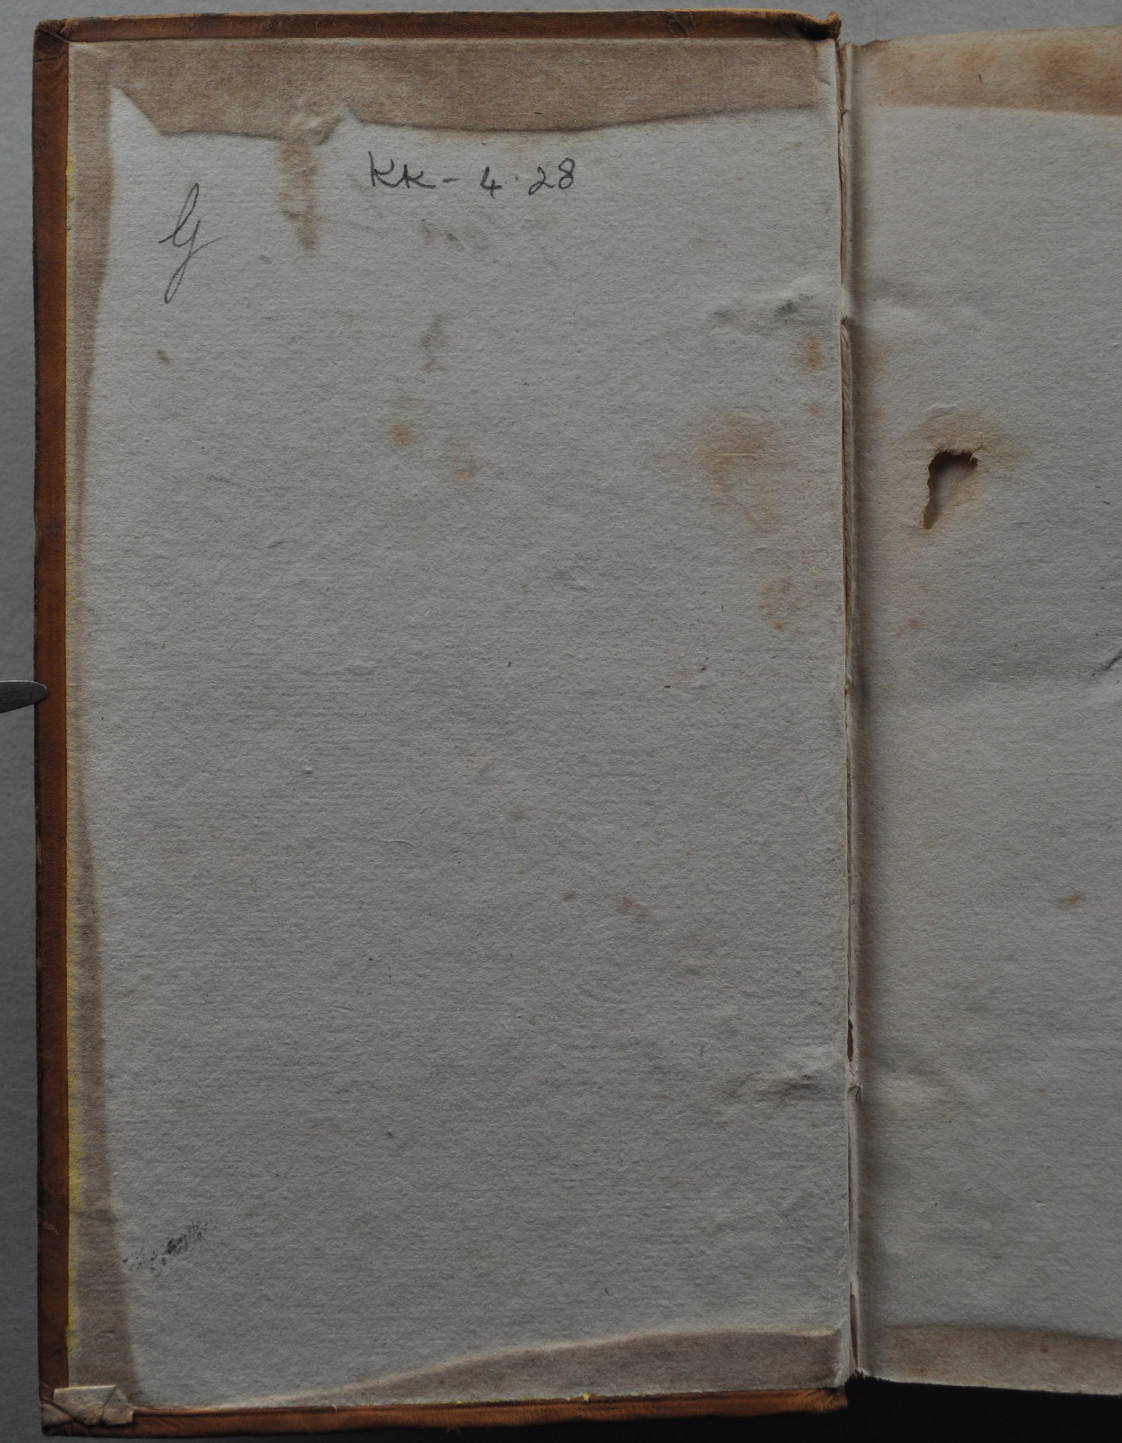 KK - 4.28